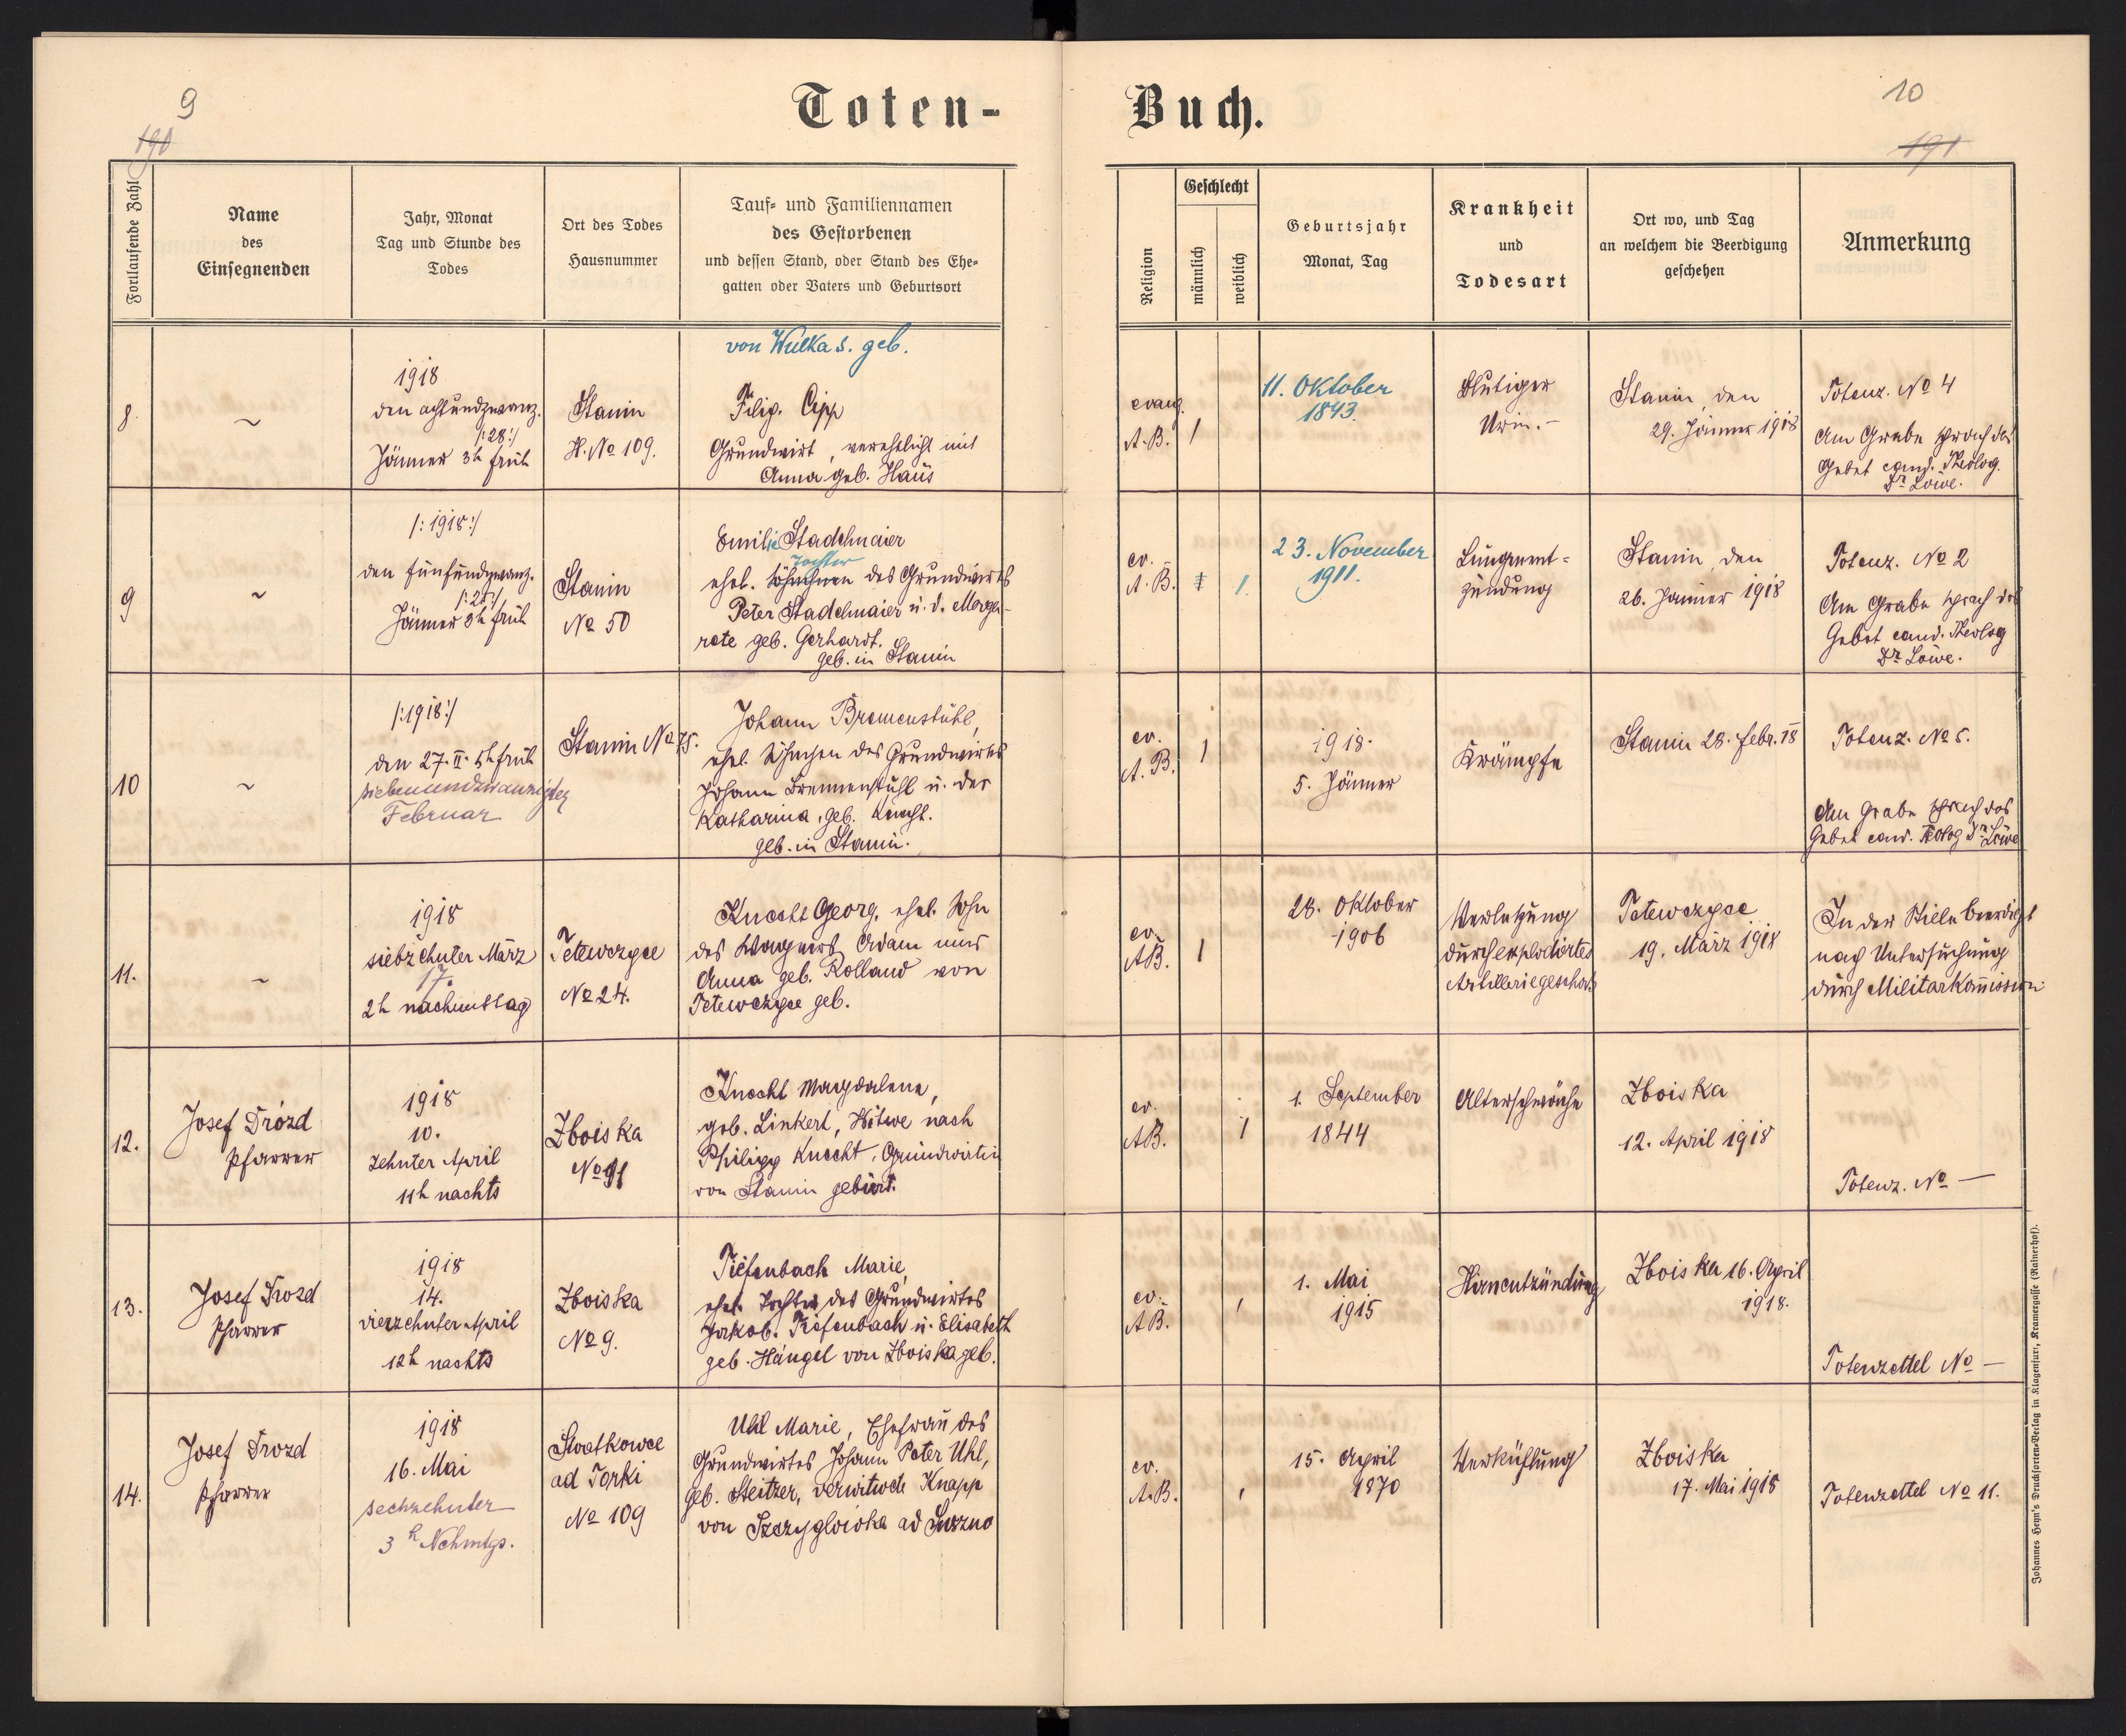 9
190
Toten-
Fortlaufende Zahl
Name
des
Einsegnenden
Jahr, Monat
Tag und Stunde des
Todes
Ort des Todes
Hausnummer
Tauf- und Familiennamen
des Gestorbenen
und dessen Stand, oder Stand des Ehe-
gatten oder Vaters und Geburtsort
8.
~
1918
den achtundzwanz.
/:28:/
Jänner 3h früh
Stanin
H. No 109.
von Wulka s. geb.
Filip. Cipp
Grundwirt, verehelicht mit
Anna geb. Haus
9
~
/:1918:/
den fünfundzwanz.
/:25:/
Jänner 3h früh
Stanin
No 50
Emilie Stadelmaier
Tochter
ehel. Söhnchen des Grundwirts
Peter Stadelmaier u. d. Marga-
rete geb. Gerhardt.
geb. in Stanin
10
~
/:1918:/
den 27. II. 5h früh
siebenundzwanzigster
Februar
Stanin No 75.
Johann Bremenstuhl,
ehel. Söhnchen des Grundwirtes
Johann Bremenstuhl u. der
Katharina, geb. Knecht.
geb. in Stanin.
11.
~
1918
siebzehnter März
17.
2h nachmittag
Tetewczyce
No 24.
Knecht Georg, ehel. Sohn
des Wagners Adam und
Anna geb. Rolland von
Tetewczyce geb.
12.
Josef Drózd
Pfarrer
1918
10.
zehnter April
11h nachts
Zboiska
No 91
Knecht Magdalena,
geb. Linkert, Witwe nach
Philipp Knecht, Grundwirtin
von Stanin gebürt.
13.
Josef Drozd
Pfarrer
1918
14.
vierzehnter April
12h nachts
Zboiska
No 9.
Tiefenbach Marie,
ehel. Tochter des Grundwirtes
Jakob Tiefenbach u. Elisabeth
geb. Hängel von Zboiska geb.
14.
Josef Drozd
Pfarrer
1918
16. Mai
sechzehnter
3h Nchmtgs.
ad Torki
No 109
Uhl Marie, Ehefrau des
Grundwirtes Johann Peter Uhl,
geb. Steitzer, verwitwete Knapp
von ad
Buch.
10
191
Religion
Geschlecht
männlich
weiblich
Geburtsjahr
Monat, Tag
Krankheit
und
Todesart
Ort wo, und Tag
an welchem die Beerdigung
geschehen
Anmerkung
evang.
A.B.
1
11. Oktober
1843.
Blutiger
Urin.-
Stanin, den
29. Jänner 1918
Totenz. No 4
Am Grabe sprach das
Gebet cand. Theolog.
Dr Löwe.
ev.
A.B.
1.
23. November
1911.
Lungenent=
zündung
Stanin, den
26. Jänner 1918
Totenz. No 2
Am Grabe sprach das
Gebet cand. Theolog
Dr Löwe.
ev.
A.B.
1
1918.
5. Jänner
Krämpfe
Stanin 28. febr. 18
Totenz. No 5.
Am Grabe sprach das
Gebet cand. Teolog Dr. Löwe
ev.
AB.
1
28. Oktober
1906
Verletzung
durch explodiertes
Artilleriegeschoß
Tetewczyce
19. März 1918
In der Stille beerdigt
nach Untersuchung
durch Militarkommission
ev.
AB.
1
1. September
1844
Altersschwäche
Zboiska
12. April 1918
Totenz. No —
ev.
AB.
1. Mai
1915
Hirnentzündung
Zboiska 16. April
1918.
Totenzettel No —
ev.
A.B.
15. April
1870
Verkühlung
Zboiska
17. Mai 1918
Totenzettel No 11.
Johannes Heyn's Drucksorten-Verlag in Klagenfurt, Kramergasse (Rainerhof).